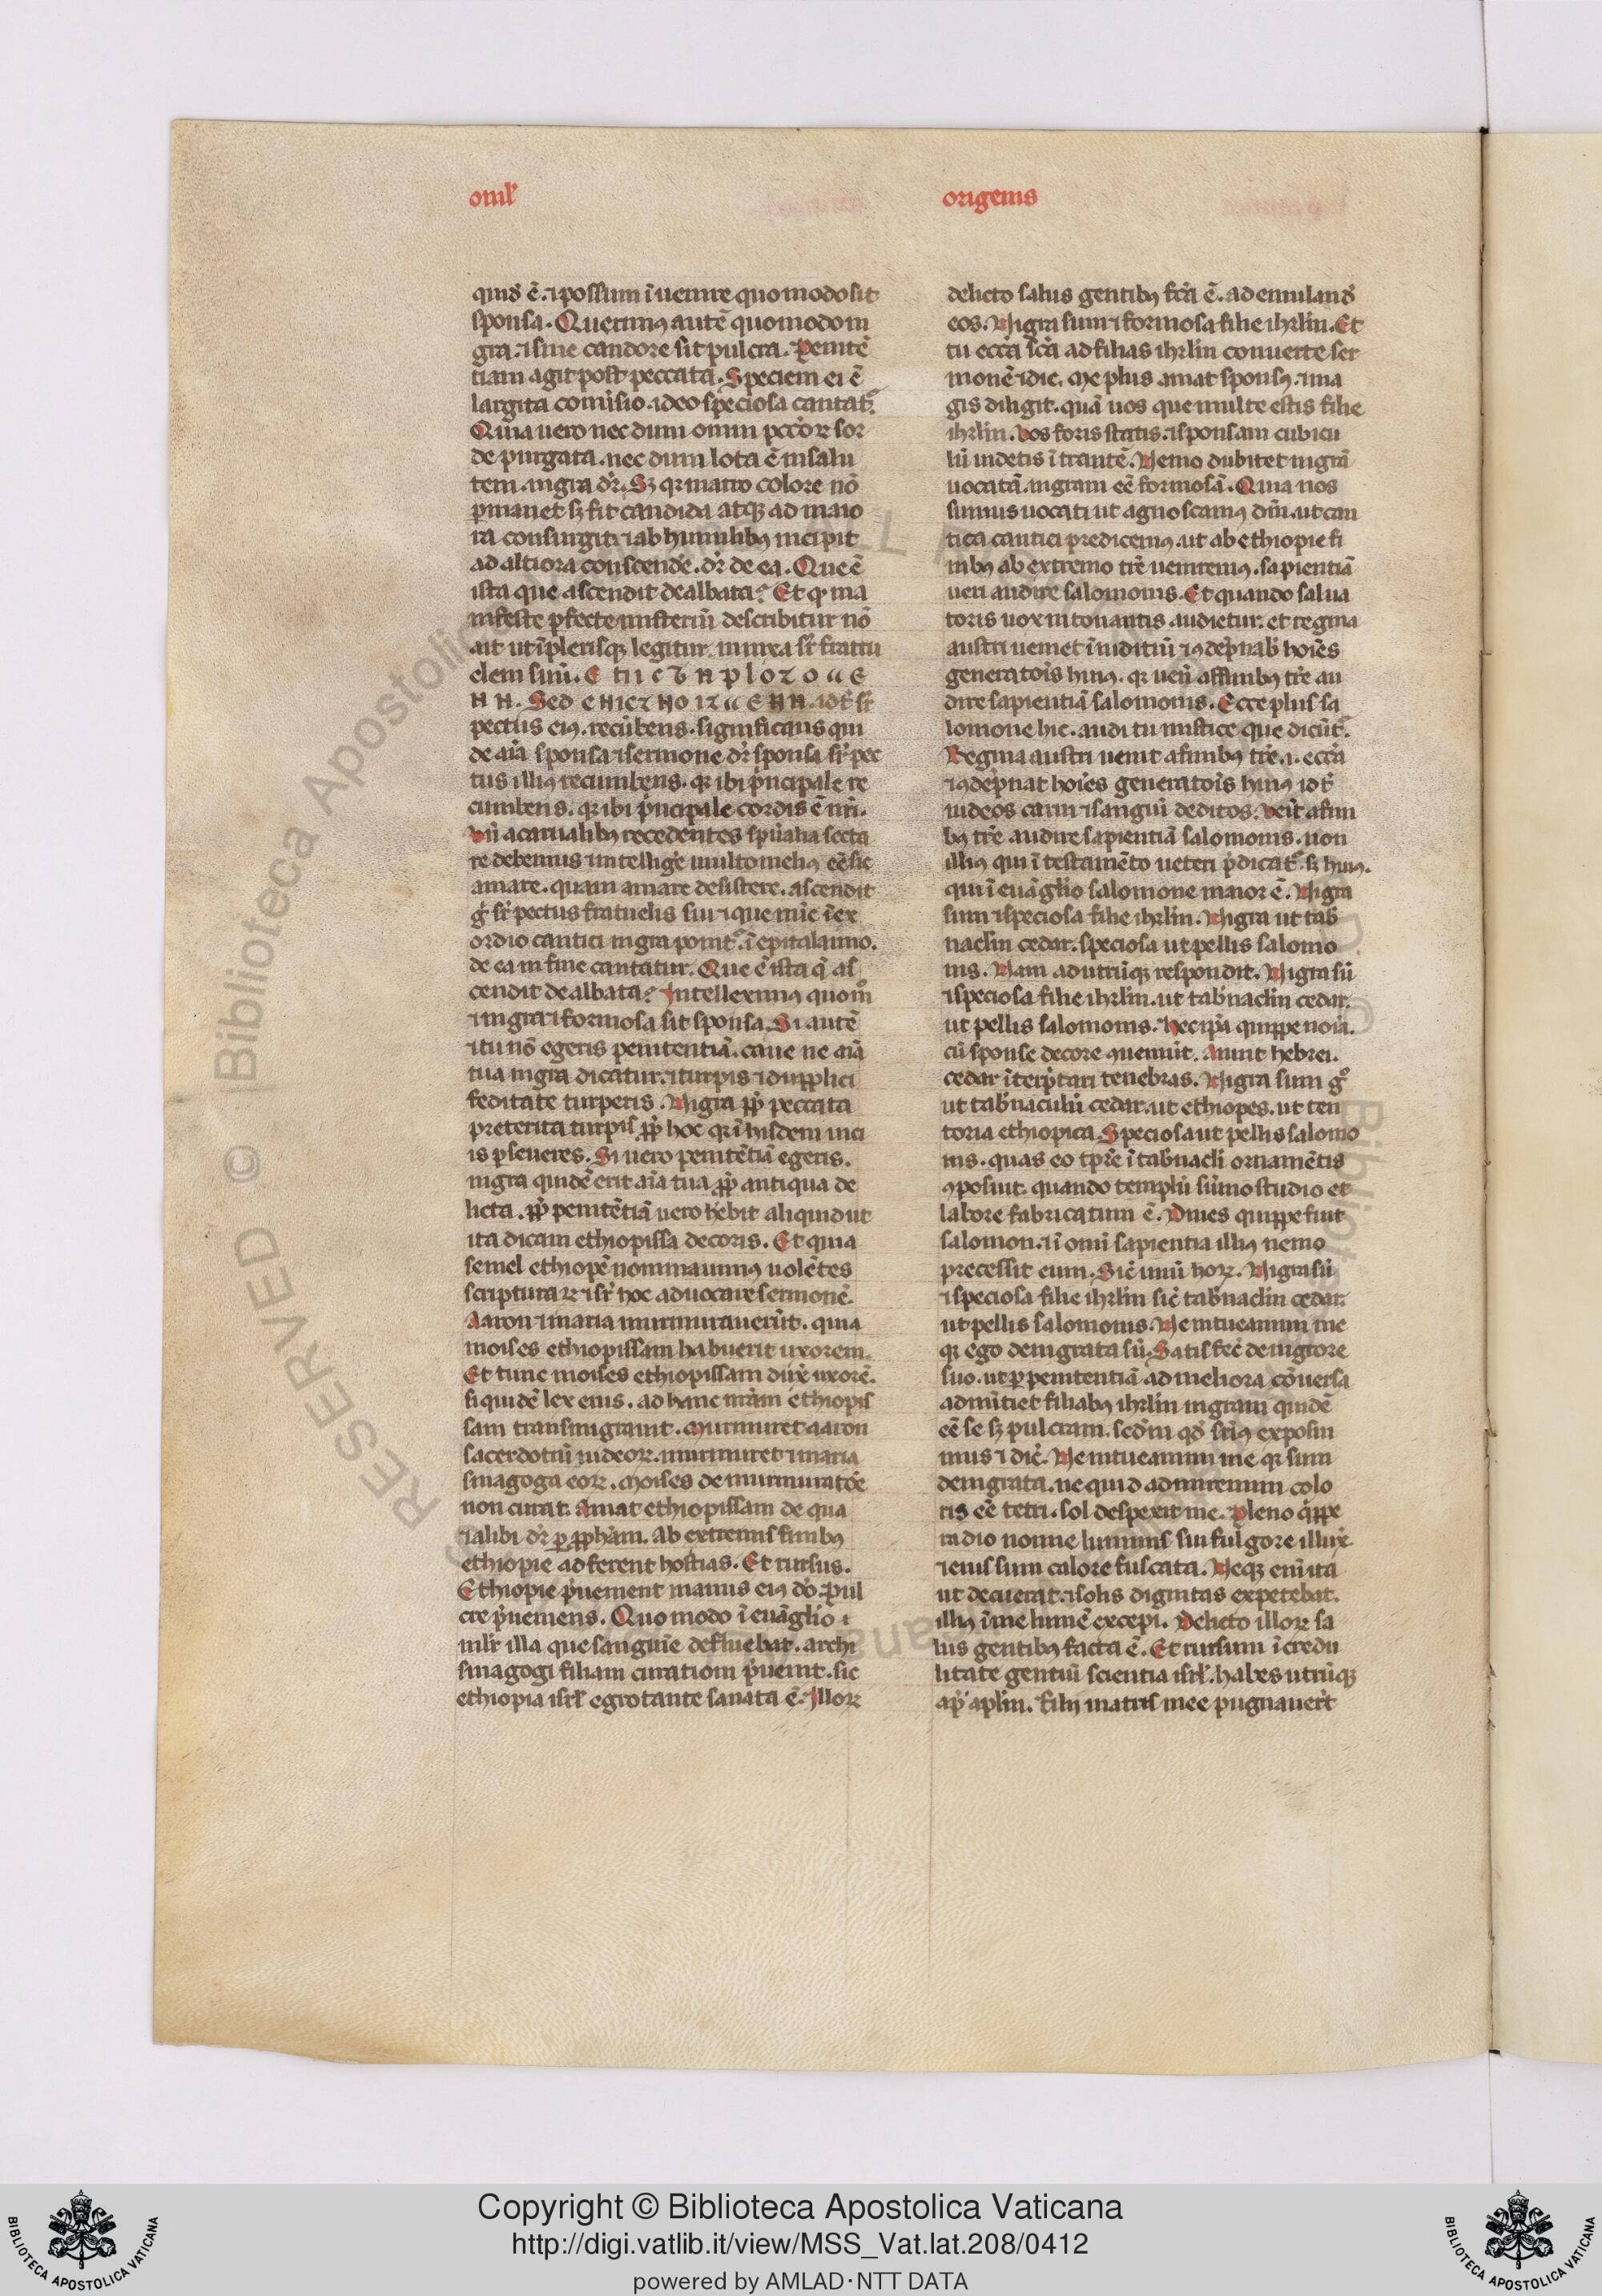 omil'
origenis
quid' ē. ⁊ possum īuenire quomodo sit
sponsa. Querim⁹ autē quomodo ni
gra. ⁊ sine candore sit pulcra. Penitē
tiam agit post peccata. Speciem ei ē
largita cōuisio. ideo speciosa cantat᷑.
Quia uero nec dum omni pccōꝝ sor
de purgata. nec dum lota ē in salu
tem. nigra dr̄. Sꝫ qꝛ in atro colore nō
ꝑmanet sꝫ fit candida atqꝫ ad maio
ra consurgit ⁊ ab humilibꝫ incipit
ad altiora conscendē. dr̄ de ea. Que ē
ista que ascendit dealbata? Et qꝛ ma
nifeste ꝑfecte misteriū describitur nō
ait ut ī plerisqꝫ legitur. inixa sr̄ fratru
elem suū.
Sed
pectus eiꝰ. recūbens. significans qui
de aīa sponsa ⁊ sermone dr̄ sponsa sr̄ pec
tus illiꝰ recumbens. qꝛ ibi p̄ncipale re
cumbens. qꝛ ibi p̄ncipale cordis ē nr̄i.
Vn̄ a carnalibꝫ recedentes spūalia secta
re debemus ⁊ intelligē multo meliꝰ eē sic
amare. quam amare desistere. ascendit
g° sr̄ pectus fratuelis sui ⁊ que nūc ī ex
ordio cantici nigra ponit᷑. ī epitalamio.
de ea in fine cantatur. Que ē ista q̄ as
cendit dealbata? Intelleximꝰ quom°
⁊ nigra ⁊ formosa sit sponsa. Si autē
⁊ tu nō egeris penitentiā. caue ne aīa
tua nigra dicatur. ⁊ turpis ⁊ dupplici
feditate turperis. Nigra ꝓp̄ peccata
preterita turpis ꝓp̄ hoc qꝛ ī hisdem uici
is ꝑseueres. Si uero penitētiā egeris.
nigra quidē erit aīa tua ꝓp̄ antiqua de
licta. ꝓp̄ penitētiā uero hēbit aliquid ut
ita dicam ethiopissa decoris. Et quia
semel ethiopē nominauimꝰ uolētes
scripturaꝝ ⁊ sr̄ hoc aduocare sermonē.
Aaron ⁊ maria murmurauerūt. quia
moises ethiopissam habuerit uxorem.
Et tunc moises ethiopissam dux̄ uxorē.
si quidē lex eius. ad hanc nr̄am ethiopis
sam transmigrauit. Murmuret aaron
sacerdotiū iudeoꝝ. murmuret ⁊ maria
sinagoga eoꝝ. Moises de murmuratōe
non curat. Amat ethiopissam de qua
⁊ alibi dr̄ ꝑ ꝓpham. Ab extremis finibꝫ
ethiopie adferent hostias. Et rursus.
Ethiopie p̄uenient manus eiꝰ dō. pul
cre p̄ueniens. Quomodo ī euāglīo ⁊
mlr̄ illa que sanguīe defluebat. archi
sinagogi filiam curatiom p̄uenit. sic
ethiopia isrl' egrotante sanata ē. Illoꝝ
delicto salus gentibꝫ fc̄a ē. ad emiland'
eos. Nigra sum ⁊ formosa filie ihrl̄m. Et
tu ecc̄a sc̄a ad filias ihrl̄m conuerte ser
monē ⁊ dic. Me plus amat sponsꝰ. ⁊ ma
gis diligit. quā uos que multe estis filie
ihrl̄m. Vos foris statis. ⁊ sponsam cubicu
lū uidetis ītrantē. Nemo dubitet nigrā
uocatā. nigram eē formosā. Quia nos
sumus uocati ut agnoscamꝰ dm̄. ut can
tica cantici predicemꝰ. ut ab ethiopie fi
nibꝫ ab extremo tr̄e ueniremꝰ. sapientiā
ueri audire salomonis. Et quando salua
toris uox intonantis audietur. et regina
austri ueniet ī iuditiū ⁊ ꝯdēpnab' hoīes
generatoīs huiꝰ. qꝛ uen̄ a finibꝫ tr̄e au
dire sapientiā salomonis. Ecce plus sa
lomone hic. audi tu mistice que dicūt᷑.
Regina austri uenit a finibꝫ tr̄e. i. ecc̄a
⁊ ꝯdēpnat hoīes generatoīs huiꝰ idr̄
iudeos carni ⁊ sanguī deditos. Ven̄t a fini
bꝫ tr̄e audire sapientiā salomonis. non
illiꝰ qui ī testamēto ueteri p̄dicat᷑. sꝫ huiꝰ.
qui ī euāglīo salomone maior ē. Nigra
sum ⁊ speciosa filie ihrl̄m. Nigra ut tab'
naclm̄ cedar. speciosa ut pellis salomo
nis. Nam ad utrūqꝫ respondit. Nigra sū
⁊ speciosa filie ihrl̄m. ut tab'naclm̄ cedar.
ut pellis salomonis. Hec ip̄a quippe noīa.
cū sponse decore ꝯueniūt. Aiunt hebrei.
cedar īterp̄tari tenebras. Nigra sum g°
ut tab'naculū cedar. ut ethiopes. ut ten
toria ethiopica. Speciosa ut pellis salomo
nis. quas eo tp̄re ī tab'nacli ornamētis
ꝯposuit. quando templū sūmo studio et
labore fabricatum ē. Diues quippe fuit
salomon. ⁊ ī omi sapientia illiꝰ nemo
precessit eum. Sic̄ unū hoꝝ. Nigra sū
⁊ speciosa filie ihrl̄m sic̄ tab'naclm̄ cedar.
ut pellis salomonis. Ne intueamini me
qꝛ ego denigrata sū. Satisfec̄ de nigrore
suo. ut ꝑ penitentiā ad meliora cōuersa
adnūtiet filiabꝫ ihrl̄m nigram quidē
eē se sꝫ pulcram. scd̄m qd̄ sr̄iꝰ exposui
mus ⁊ dic̄. Ne intueamini me qꝛ sum
denigrata. ne quid admiremini colo
ris eē tetri. sol despexit me. Pleno q̄ppe
radio nonne luminis sui fulgore illux̄
⁊ eius sum calore fuscata. Neqꝫ eni ita
ut decuerat. ⁊ solis dignitas expetebat.
illiꝰ ī me lumē excepi. Delicto illoꝝ sa
lus gentibꝫ facta ē. Et rursum ī credu
litate gentiū scientia isrl'. habes utrūqꝫ
ap̄ ap̄lm̄. Filii matris mee pugnauer̄t
© Biblioteca Apostolica Vaticana
RESERVED
Copyright © Biblioteca Apostolica Vaticana
http://digi.vatlib.it/view/MSS_Vat.lat.208/0412
powered by AMLAD·NTT DATA
BIBLIOTECA APOSTOLICA VATICANA
BIBLIOTECA APOSTOLICA VATICANA